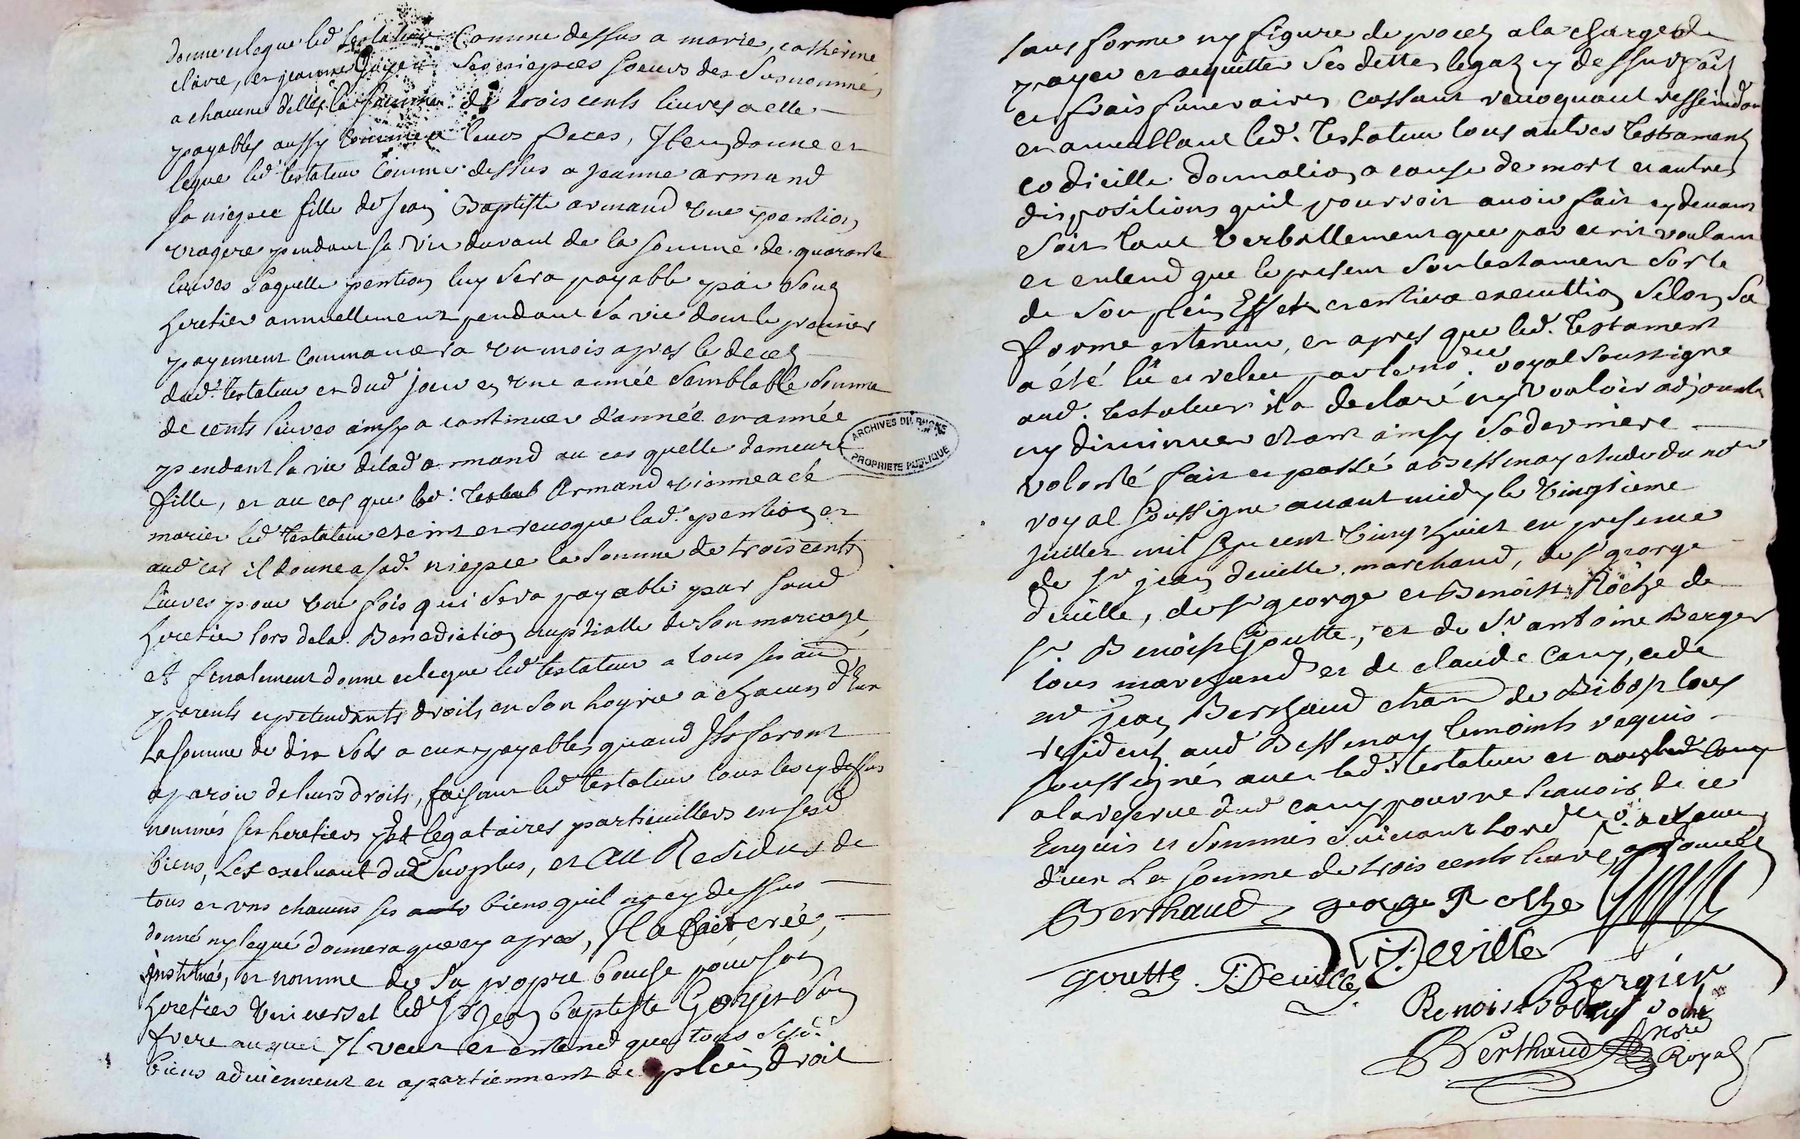 donne et legue led testateur Comme dessus a marie, catherine
claire, et jeanne Goyet Ses niepces soeurs des Susnommés
a chacune delles la somme de trois cents livres a elle
payables aussy comme a leurs freres, Item donne et
legue led testateur Comme dessus a jeanne armand
sa niepce fille de Jean Baptiste armand une pention
viagere pendant sa vie durant de la somme de quarante
livres Laquelle pention luy sera payable par Son
heretier annuellement pendant sa vie dont le premier
payement Commancera un mois apres le deces
dud. testateur et dud jour en une année Semblable Somme
de cents livres ainsy a continuer d'année en année
pendant la vie de lad armand au cas quelle demeure
fille, et au cas que lad. Armand vienne a cé
marier led Testateur eteint et revoque lad. pention et
aud cas il donne a sad. niepce la Somme de trois cents
Livres pour une fois qui Sera payable par Sond
heretier lors de la Benediction nuptialle de Son mariage,
et finalement donne et legue led testateur a tous ses
parents et pretendants droits en Son hoyrie a chacun d'Eux
La Somme de dix Sols a eux payables quand Ils feront
aparoir de leurs droits, faisant led testateur tous les cy dessus
nommés ses heretiers et legataires particuilliers en sesd
biens, Les excluant dud Surplus, et Au Residus de
tous et uns chacuns ses biens quil n'a cy dessus
donné ny legué donnera que cy apres, Il a fait, crée,
institué, et nomme de Sa propre bouche pour son
heretier Universel led Sr Jean Baptiste Goyet Son
frere auquel Il veut et entend que tous Sesd.
biens adviennent et apartiennent de plein droit
ARCHIVES DU RHONE
PROPRIETE PUBLIQUE
sans forme ny figure de proces a la charge de
payer et acquitter Ses dettes legat cy dessus fait
et frais funeraires Cassant revoquant
et annullant led. Testateur tous autres testament
codicille donnation a cause de mort et autres
dispositions quil pourroit avoir fait cy devant
Soit tant verballement que par ecrit voulant
et entend que le present Son testament Sorte
de Son plein Effet et entiere execution Selon Sa
forme et teneur, et apres que led. Testament
a été lü et relu par le nore royal Soussigné
aud. testateur il a declaré ny vouloir adjouter
ny diminuer etant ainsy Sa derniere
volonté fait et passé a Bessenay etude du nore
royal Soussigné avant midy le vingtieme
Juillet mil Sept cent vingt huict en presence
de Sr jean deville marchand, de Sr george
deville, de Sr george et Benoist Röche de
Sr Benoist Goutte, et de Sr antoine Berger
tous marchand et de claude Cany, et de
me jean Berthaud chan de Bibost tous
residents aud Bessenay temoints requis
Soussignés avec led. testateur et
a la reserve dud Cany pour ne Scavoir de ce
Enquis et Sommés Suivant Lord.ce
d'un La Somme de trois cents livres,
Berthaud george Rosthe
goutte. J: Deville J: Deville
Bergier
Benoist
Berthaud Nore
Royal